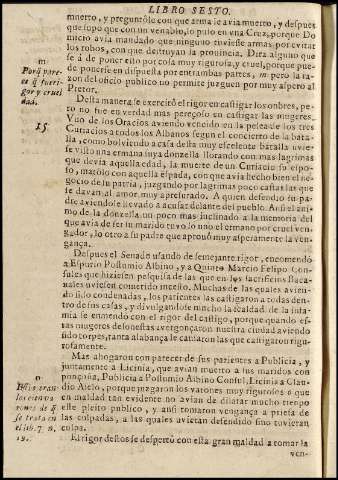 LIBRO SESTO.
muerto, y preguntóle con que arma le avia muerto, y despues
que supo que con un venablo, lo puso en una Cruz, porque Do
micio avia mandado que ninguno tuviesse armas por evitar
los robos, con que destruyan la provincia. Dira alguno que
se á de poner esto por cosa muy rigurosa, y cruel, porque pue-
de ponerse en disputa por entrambas partes, m pero la ra-
zon del oficio publico no permite juzguen por muy aspero al
Pretor.
m
Porq̃ pare-
ce q̃ fue ri-
gor y cruel
dad.
15
Desta manera se exercitó el rigor en castigar los onbres, pe-
ro no fue en verdad mas pereçoso en castigar las mugeres.
Vno de los Oracios aviendo vencido en la pelea de los tres
Curiacios a todos los Albanos segun el concierto de la bata-
lla, como bolviendo a casa desta muy escelente batalla uvie-
se visto una ermana suya donzella llorando con mas lagrimas
que devia aquella edad, la muerte de un Curiacio su espo-
so, matóla con aquella espada, con que avia hecho bien el ne-
gocio de su patria, juzgando por lagrimas poco castas las que
se davan al amor muy apresurado. A quien defendio su pa-
dre aviendole llevado a acusar delante del pueblo. Ansi el ani-
mo de la donzella un poco mas inclinado a la memoria del
que avia de ser su marido tuvo lo uno el ermano por cruel ven-
gador, lo otro a su padre que aprouó muy asperamente la ven-
gança.
Despues el Senado usando de semejante rigor, encomendó
a Espurio Postumio Albino, y a Quinto Marcio Felipo Con-
sules que hiziesen pesquisa de las que en los sacrificios Baca-
nales uviesen cometido incesto. Muchas de las quales avien-
do sido condenadas, los parientes las castigaron a todas den-
tro de sus casas, y divulgandose mucho la fealdad de la infa-
mia se enmendo con el rigor del castigo, porque quando es-
tas mugeres desonestas avergonçaron nuestra ciudad aviendo
sido torpes, tanta alabança le causaron las que castigaron rigu-
rosamente.
Mas ahogaron con parecer de sus parientes a Publicia, y
juntamente a Licinia, que avian muerto a sus maridos con
ponçoña, Publicia a Postumio Albino Consul, Licinia a Clau-
dio Aselo, porque juzgaron los varones muy rigurosos q̃ que
en maldad tan evidente no avian de dilatar mucho tiempo
este pleito publico, y ansi tomaron vengança a priesa de
las culpadas, a las quales uvieran defendido sino tuvieran
culpa.
n
se trata en
el lib. 7. n.
19.
El rigor destos se despertó con esta gran maldad a tomar la
ven-